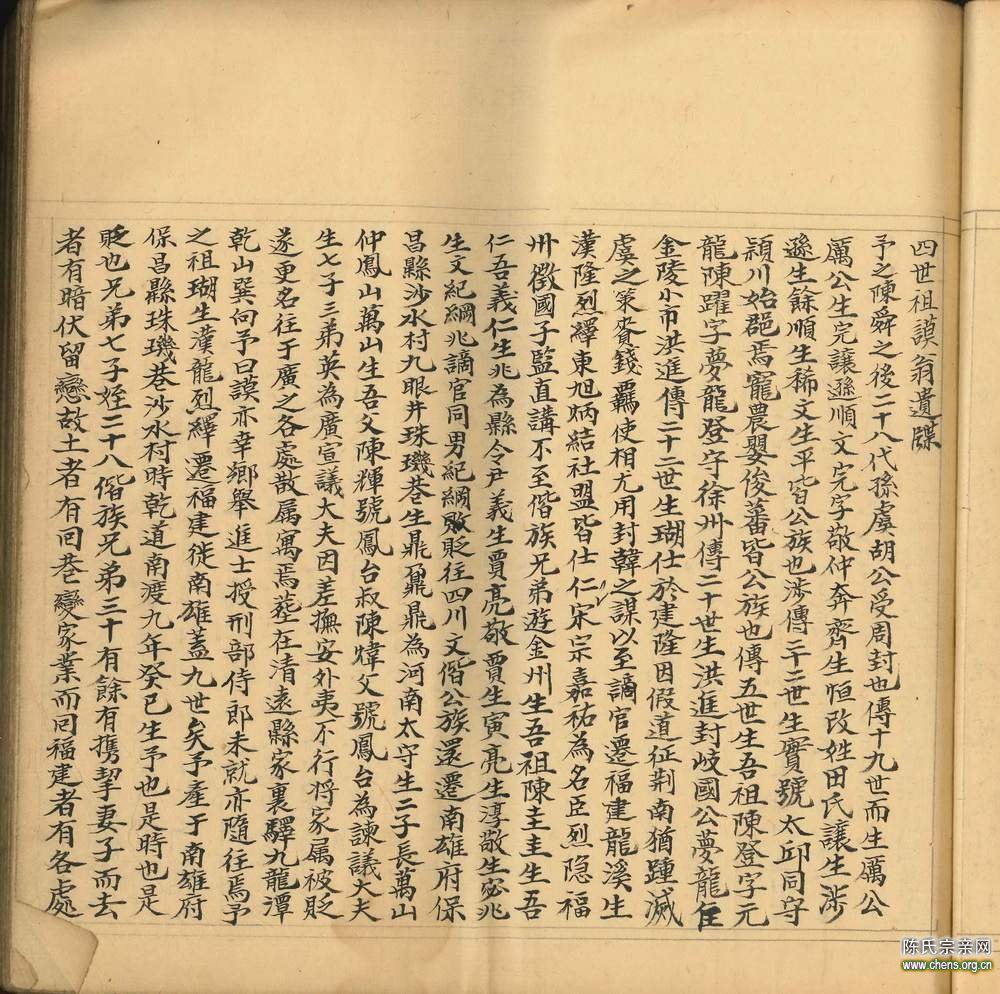 四世祖謨翁遺牒
予之陳舜之後二十八代孫虞胡公受周封也傳十九世而生厲公
厲公生完讓遜順文完字敬仲奔齊生恒改姓田氏讓生涉
遜生餘順生稀文生平皆公族也涉傳二十二世生實號太邱同守
穎川始鄙焉寵農嬰俊蕃皆公族也傳五世生吾祖陳登字元
龍陳躍字夢龍登守徐州傳二十世生洪進封岐國公夢龍住
金陵小市洪進傳二十二世生瑚仕於建隆因假道征荆南猶踵滅
虞之策賚錢羈使相尤用封韓之謀以至謫官遷福建龍溪生
漢隆烈繹東旭炳結社盟皆仕仁宋宗嘉祐為名臣烈隐福
卅徵國子監直講不至偕族兄弟遊金州生吾祖陳圭圭生吾
仁吾義仁生兆為縣令尹義生賈亮敬賈生寅亮生淳敬生宓兆
生文紀綱兆謫官同男紀綱敗貶往四川文偕公族還遷南雄府保
昌縣沙水村九眼井珠璣巷生鼎鼐鼎為河南太守生二子長萬山
仲鳳山萬山生吾父陳輝號鳳台叔陳煒父號鳳台為諫議大夫
生七子三弟英為廣宣議大夫因差撫安外夷不行將家属被貶
遂更名往于廣之各處散属寓焉塟在清遠縣家裏驛九龍潭
乾山巽向予曰謨亦幸鄉舉進士授刑部侍郎未就亦隨往焉予
之祖瑚生漢龍烈繹遷福建徙南雄蓋九世矣予產于南雄府
保昌縣珠璣巷沙水村時乾道南渡九年癸巳生予也是時也是
貶也兄弟七子姪二十八偕族兄弟三十有餘有攜挈妻子而去
者有暗伏留戀故土者有回巷變家業而囘福建者有各處
陈氏宗亲网
www.chens.org.cn